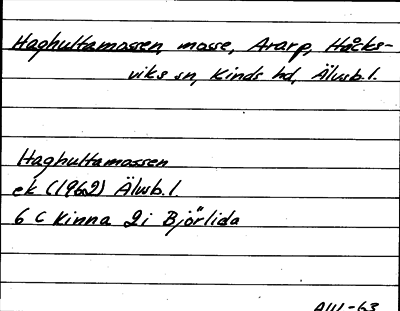 Haghultamossen, mosse, Ararp, Håcks-
viks sn, Kinds hd, Älvsb.l.
Haghultamossen
ek (1962) Älvsb.l
6 C Kinna 2i Björlida